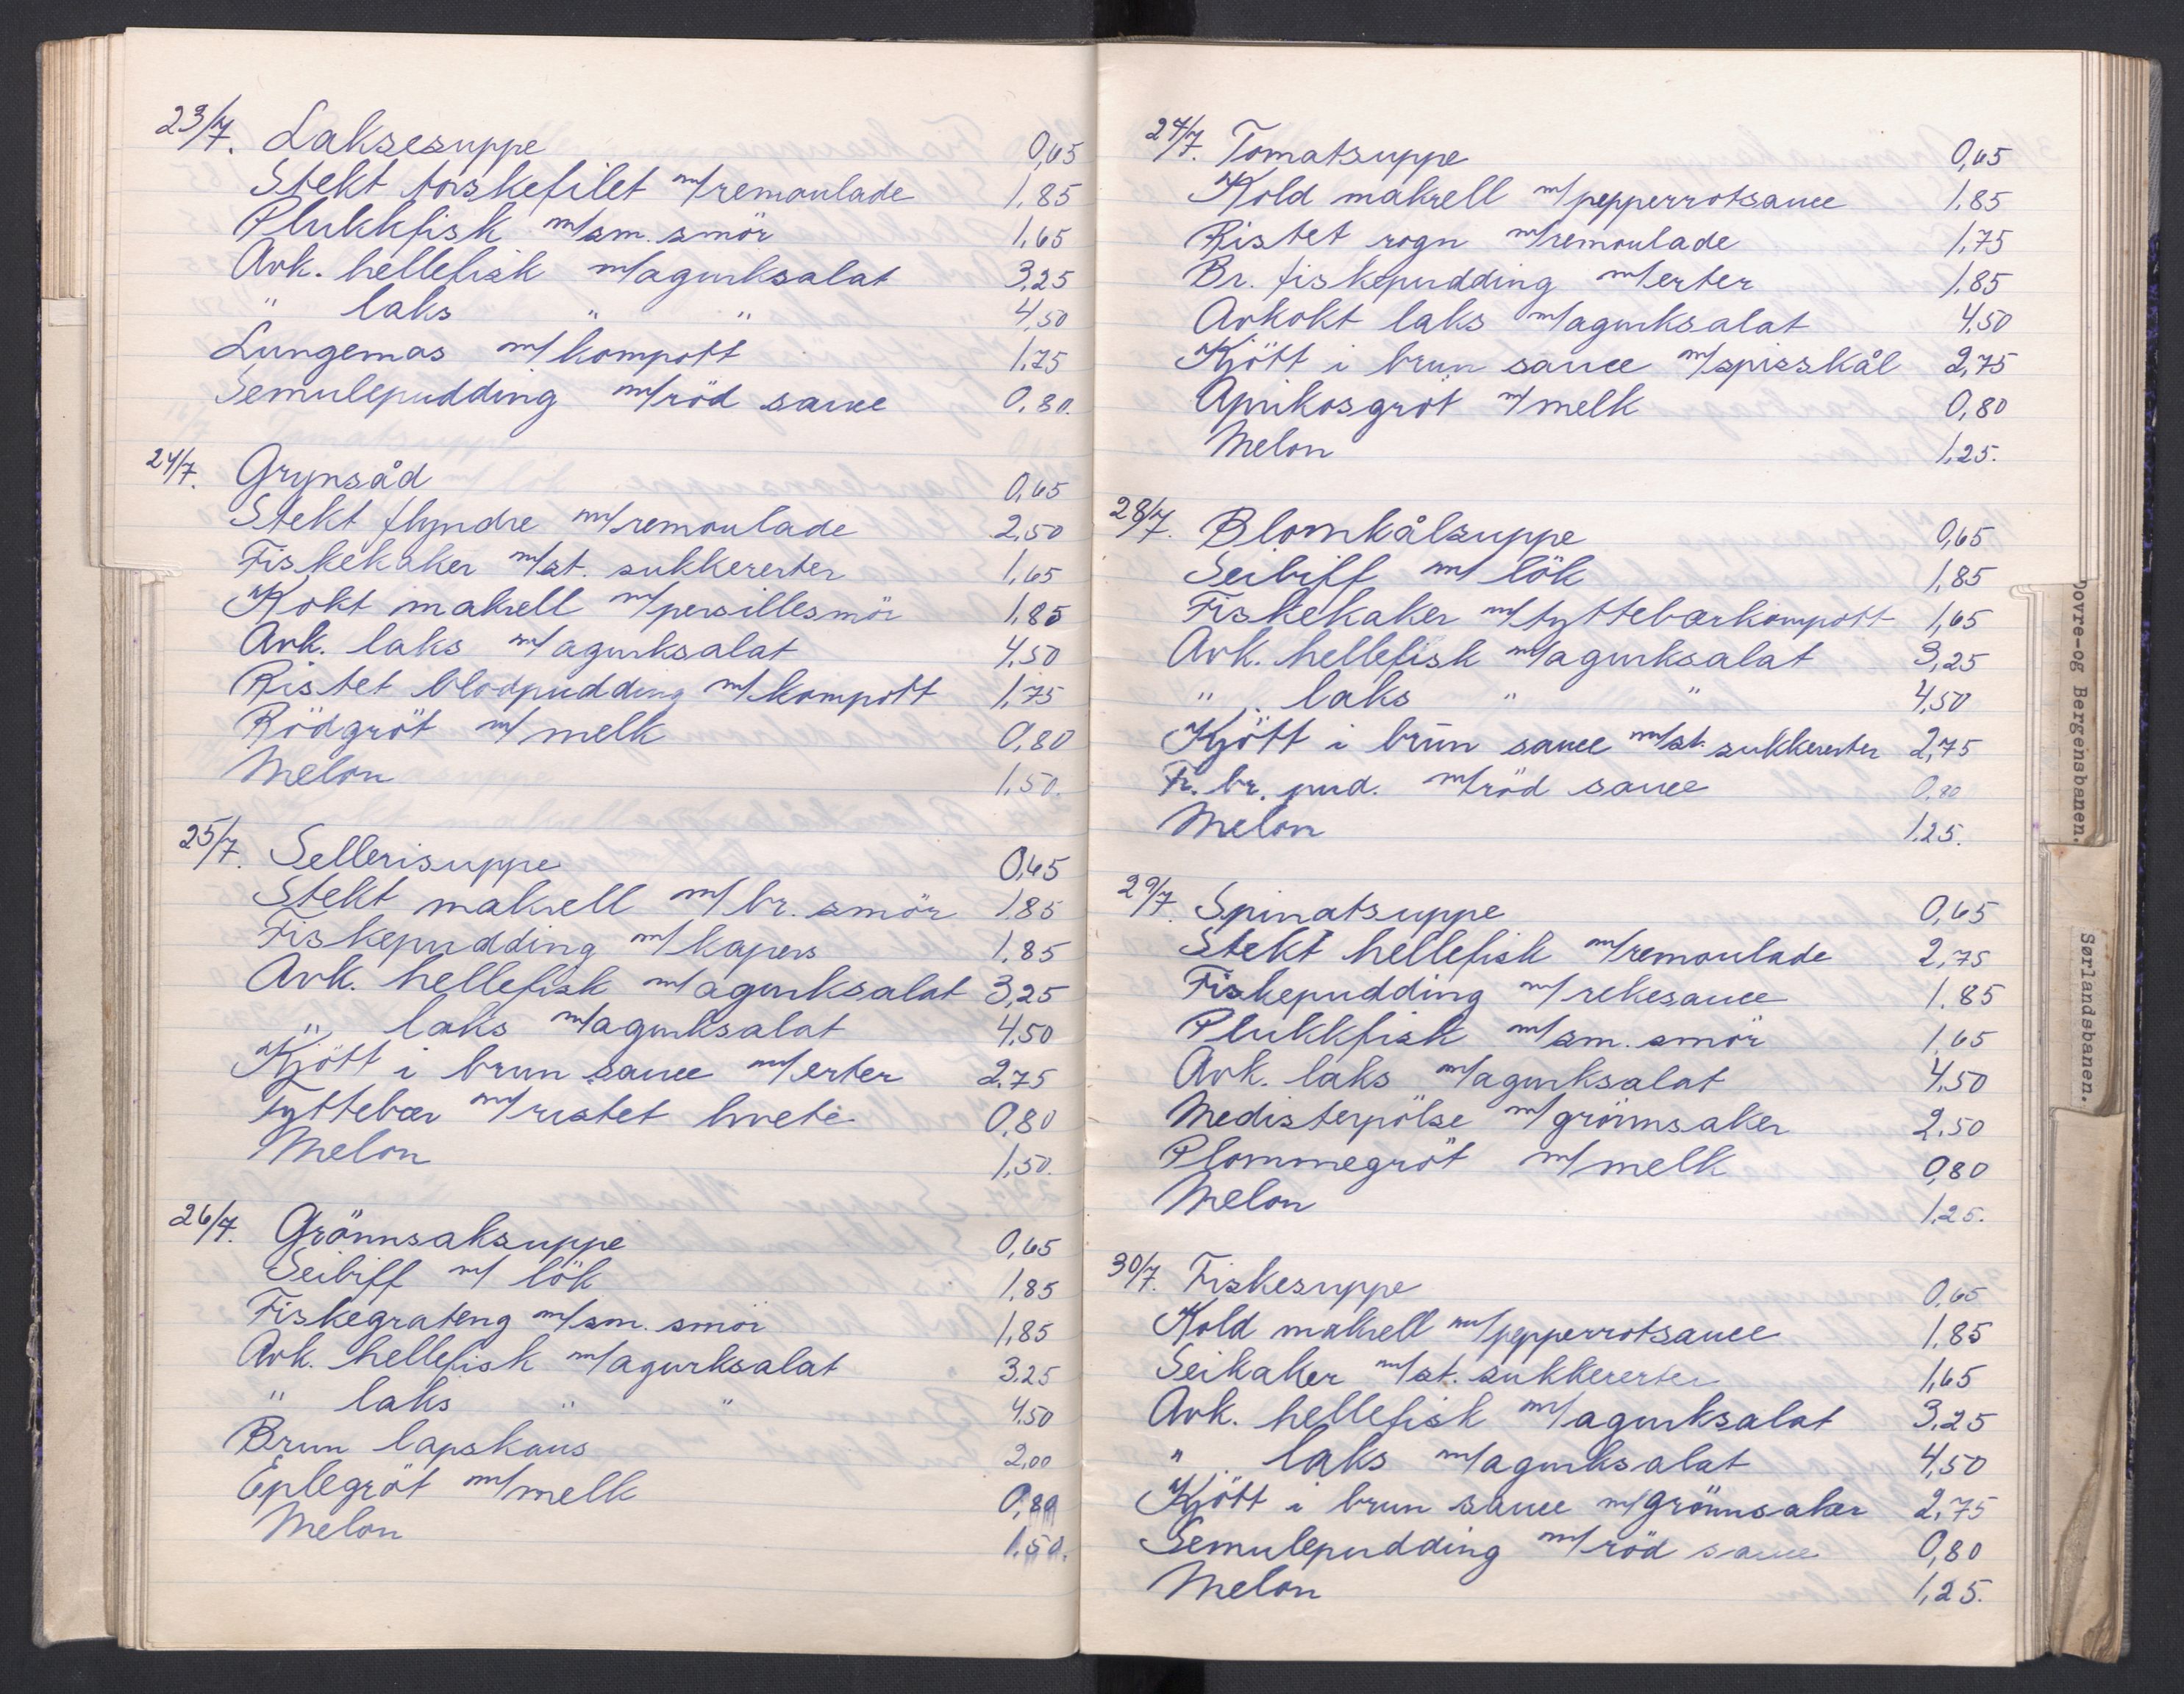 23/7. Laksesuppe 0,65
Stekt torskefilet m/remoulade 1,85
Plukkfisk m/sm. smör 1,65
Avk. hellefisk m/agurksalat 3,25
" laks " " 4,50
Lungemos m/kompott 1,75
Semulepudding m/röd sauce 0,80.
24/7. Grynsåd 0,65
Stekt flyndre m/remoulade 2,50
Fiskekaker m/st. sukkererter 1,65
Kokt makrell m/persillesmör 1,85
Avk. laks m/agurksalat 4,50
Ristet blodpudding m/kompott 1,75
Rödgröt m/melk 0,80
Melon 1,50.
25/7. Sellerisuppe 0,65
Stekt makrell m/br. smör 1,85
Fiskepudding m/kapers 1,85
Avk. hellefisk m/agurksalat 3,25
" laks m/agurksalat 4,50
Kjött i brun sauce m/erter 2,75
Tyttebær m/ristet hvete 0,80
Melon 1,50.
26/7. Grönnsaksuppe 0,65
Seibiff m/ lök 1,85
Fiskegrateng m/sm. smör 1,85
Avk. hellefisk m/agurksalat 3,25
" laks " " 4,50
Brun lapskaus 2,00
Eplegröt m/melk 0,80
Melon 1,50.
27/7. Tomatsuppe 0,65
Kold makrell m/pepperrotsauce 1,85
Ristet rogn m/remoulade 1,75
Br. fiskepudding m/erter 1,85
Avkokt laks m/agurksalat 4,50
Kjött i brun sauce m/spisskål 2,75
Aprikosgröt m/melk 0,80
Melon 1,25.
28/7. Blomkålsuppe 0,65
Seibiff m/ lök 1,85
Fiskekaker m/tyttebærkompott 1,65
Avk. hellefisk m/agurksalat 3,25
" laks " " 4,50
Kjött i brun sauce m/st. sukkererter 2,75
Fr. br. pud. m/röd sauce 0,80
Melon 1,25.
29/7. Spinatsuppe 0,65
Stekt hellefisk m/remoulade 2,75
Fiskepudding m/rekesauce 1,85
Plukkfisk m/sm. smör 1,65
Avk. laks m/agurksalat 4,50
Medisterpölse m/grönnsaker 2,50
Plommegröt m/melk 0,80
Melon 1,25.
30/7. Fiskesuppe 0,65
Kold makrell m/pepperrotsauce 1,85
Seikaker m/st. sukkererter 1,65
Avk. hellefisk m/agurksalat 3,25
" laks m/agurksalat 4,50
Kjött i brun sauce m/grönnsaker 2,75
Semulepudding m/röd sauce 0,80
Melon 1,25.
Dovre-og Bergensbanen.
Sørlandsbanen.